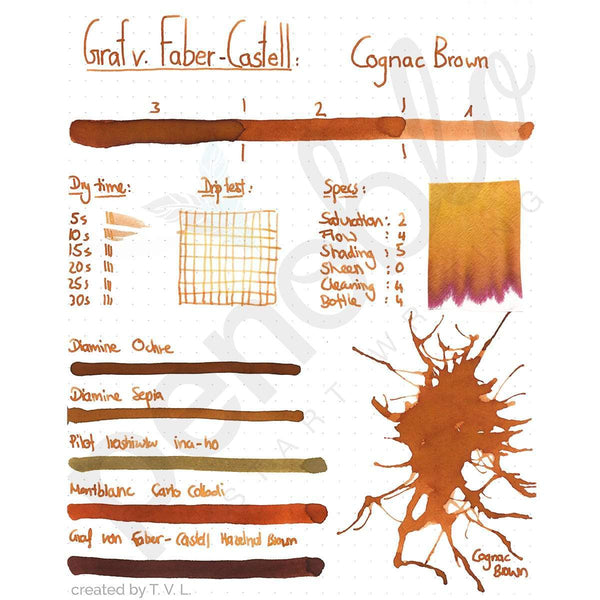 Graf v. Faber-Castell:
Cognac Brown
3 2 1
Dry time:
5s
10s
15s
20s
25s
30s
Drip test:
Specs:
Saturation: 2
Flow : 4
Shading : 5
Sheen : 0
Cleaning : 4
Bottle : 4
Diamine Ochre
Diamine Sepia
Pilot ina-ho
Montblanc Carlo Collodi
Graf von Faber-Castell Hazelnut Brown
Cognac
Brown
penoblo
START WRITING
created by T. V. L.